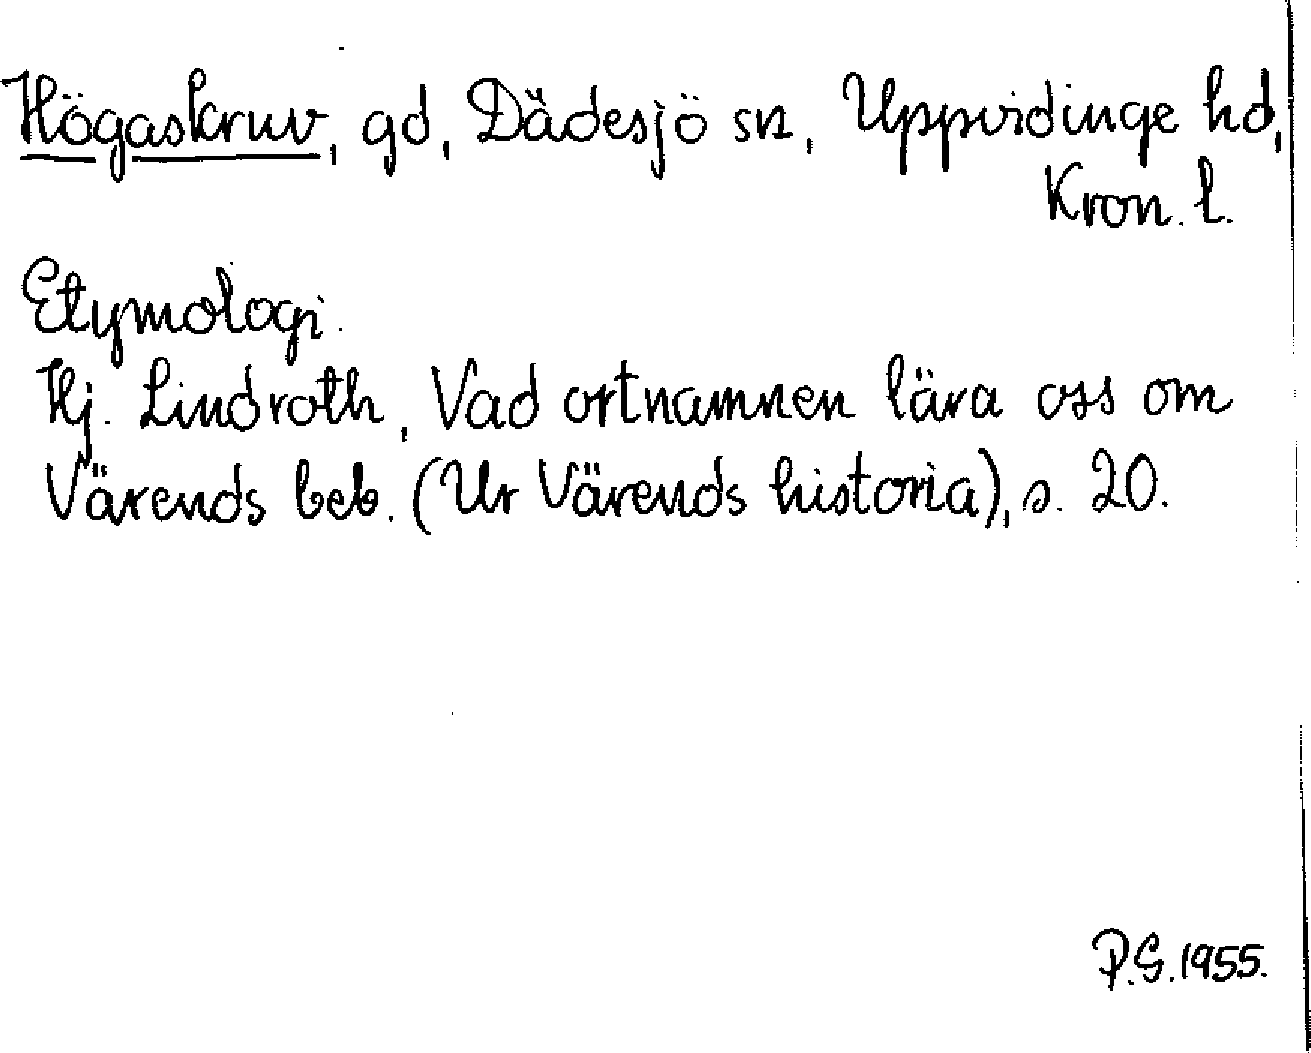 Högaskruv, gd, Dädesjö sn, Uppvidinge hd,
Kron. l.
Etymologi.
Hj. Lindroth, Vad ortnamnen lära oss om
Värends beb. (Ur Värends historia), s. 20.
P.G. 1955.